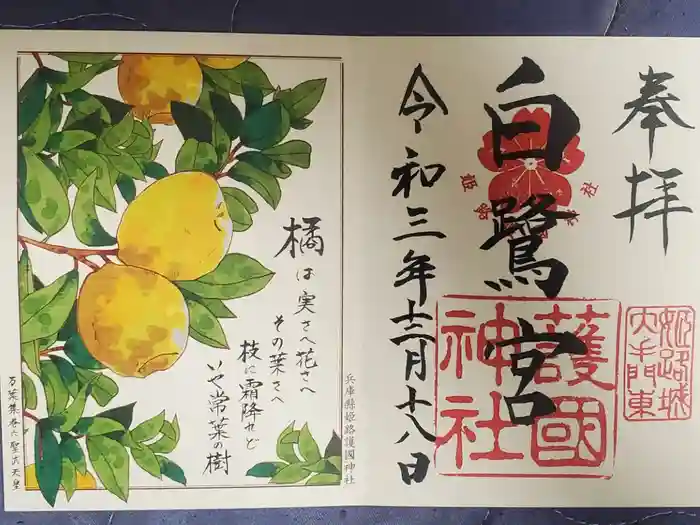 奉拝
姫路城
大手門東
白鷺宮
護國
神社
令和三年十二月十八日
兵庫縣姫路護國神社
橘は実さへ花さへ
その葉さへ
枝に霜降れど
いや常葉の樹
万葉集巻六聖武天皇